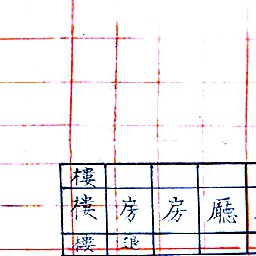 樓
樓 房 房 廳
樓